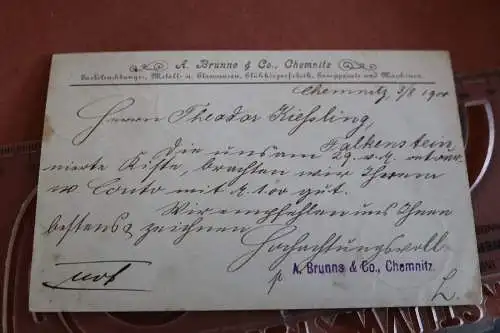 A. Brunne & Co., Chemnitz
Gasbeleuchtungs-, Metall- u. Glaswaaren, Glühkörperfabrik, Lampen und Maschinen.
Chemnitz, 3/8 1900
Herrn Theodor Kiessling,
Falkenstein
Die uns am 29. v. M. retour-
nierte Kiste, brachten wir Ihrem
w. Conto mit M 1.00 gut.
Wir empfehlen uns Ihnen
bestens & zeichnen
Hochachtungsvoll
p A. Brunne & Co., Chemnitz.
L.